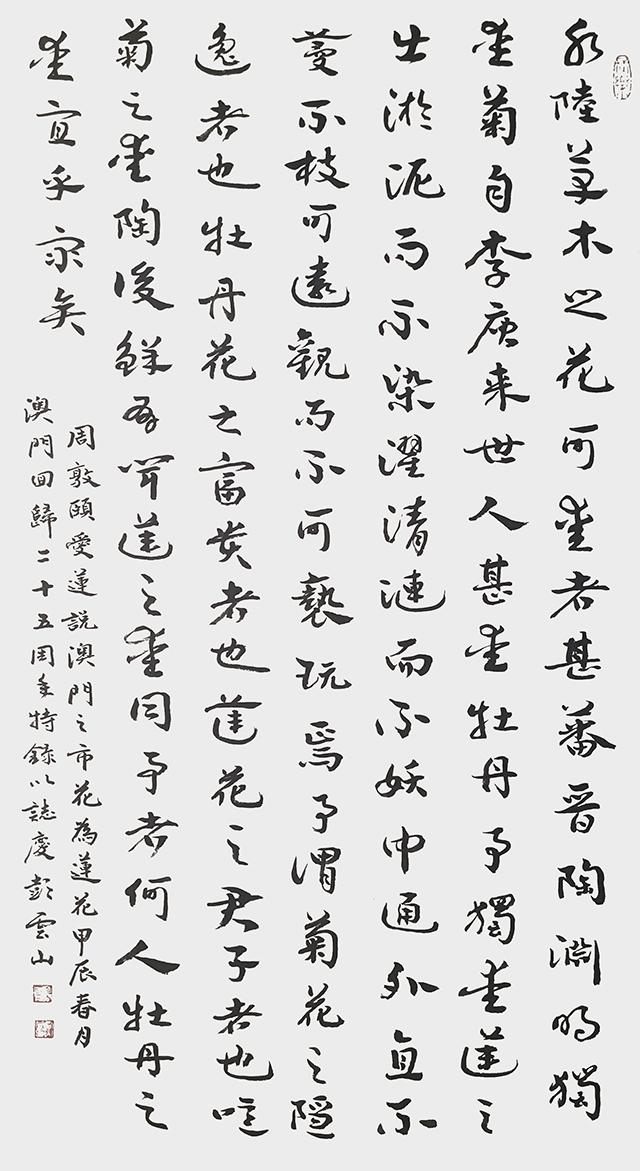 水陸草木之花可愛者甚蕃晉陶淵明獨
愛菊自李唐来世人甚愛牡丹予獨愛蓮之
出淤泥而不染濯清漣而不妖中通外直不
蔓不枝可遠觀而不可褻玩焉予謂菊花之隱
逸者也牡丹花之富貴者也蓮花之君子者也噫
菊之愛陶後鮮有聞蓮之愛同予者何人牡丹之
愛宜乎衆矣
周敦頤愛蓮説澳門之市花為蓮花甲辰春月
澳門回歸二十五周年特錄以誌慶彭雲山